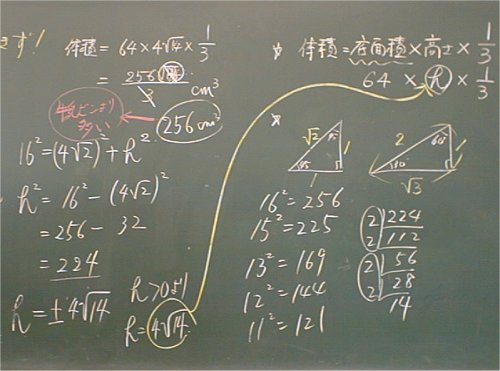 きす!
体積 = 64×4√14×1/3
= 256√14/3 cm³
256 cm²
16² = (4√2)² + h²
h² = 16² - (4√2)²
= 256 - 32
= 224
h = ±4√14
h>0より
h = 4√14
体積 = 底面積×高さ×1/3
64 × h × 1/3
√2
45
1
1
2
60°
30°
1
√3
16² = 256
15² = 225
13² = 169
12² = 144
11² = 121
2 224
2 112
2 56
2 28
14